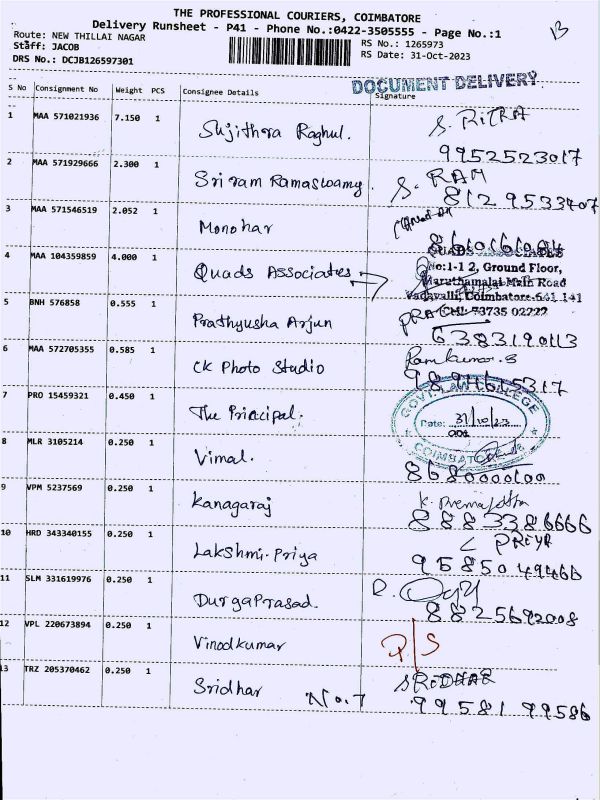 THE PROFESSIONAL COURIERS, COIMBATORE
13
Delivery Runsheet - P41 - Phone No.:0422-3505555 - Page No.:1
Route: NEW THILLAI NAGAR
RS No.: 1265973
Staff: JACOB
RS Date: 31-Oct-2023
DRS No.: DCJB126597301
DOCUMENT DELIVERY
S No Consignment No Weight PCS Consignee Details Signature
1 MAA 571021936 7.150 1 Sujithra Raghul. S. RITRA
9952523017
2 MAA 571929666 2.300 1 Sriram Ramaswamy. S. RAM
8129533407
3 MAA 571546519 2.052 1 Monohar
4 MAA 104359859 4.000 1 Quads Associates
QUADS ASSOCIATES
No:1-1 2, Ground Floor,
Maruthamalai Main Road
Vadavalli, Coimbatore-641 141
73735 02222
5 BNH 576858 0.555 1 Prathyusha Arjun
6383190113
6 MAA 572705355 0.585 1 CK Photo Studio Ramkumar.S
7 PRO 15459321 0.450 1 The Principal.
GOVT. LAW COLLEGE
Date: 31/10/23
COIMBATORE
8 MLR 3105214 0.250 1 Vimal.
9 VPM 5237569 0.250 1 Kanagaraj K.
8883386666
10 HRD 343340155 0.250 1 Lakshmi.Priya L PRIYA
9585049466
11 SLM 331619976 0.250 1 DurgaPrasad.
8825692008
12 VPL 220673894 0.250 1 Vinodkumar P/S
13 TRZ 205370462 0.250 1 Sridhar No.7 SRIDHAR
99581 99586